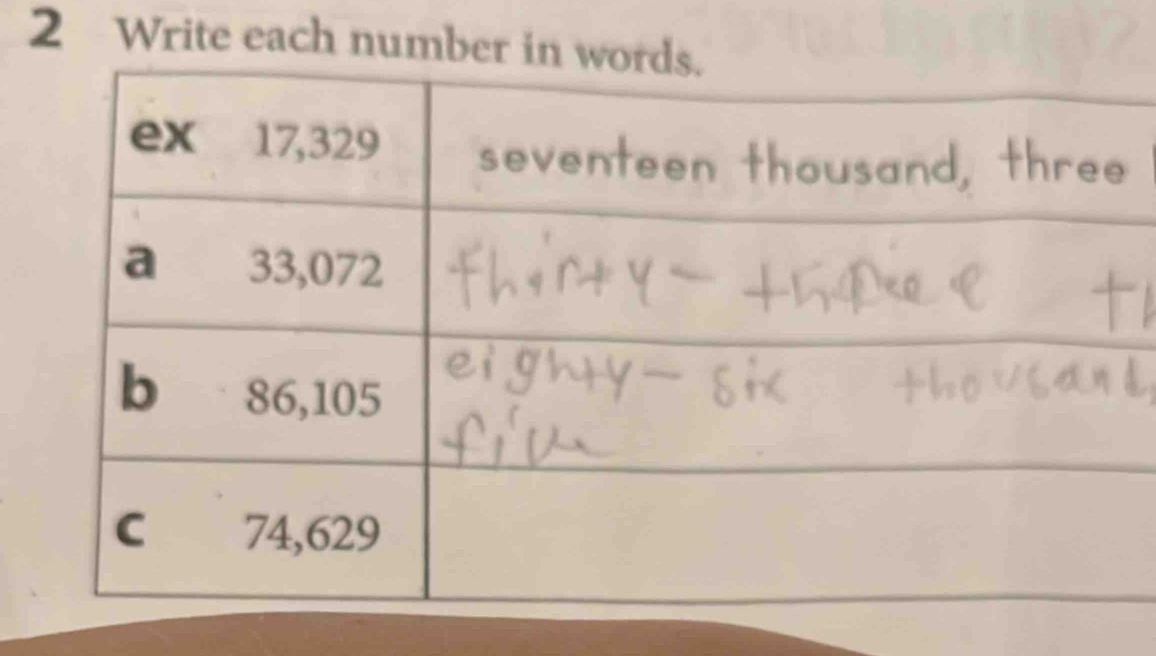 2 Write each number in words.
ex 17,329 seventeen thousand, three
a 33,072 thirty - three
b 86,105 eighty - six thousand,
five
c 74,629